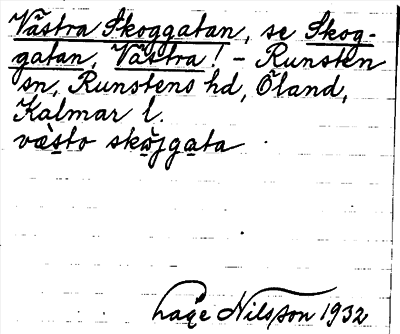 Västra Skoggatan, se Skog-
gatan, Västra! - Runsten
sn, Runstens hd, Öland,
Kalmar l.
væ̀sto skɷ̀jgata
Lage Nilsson 1932